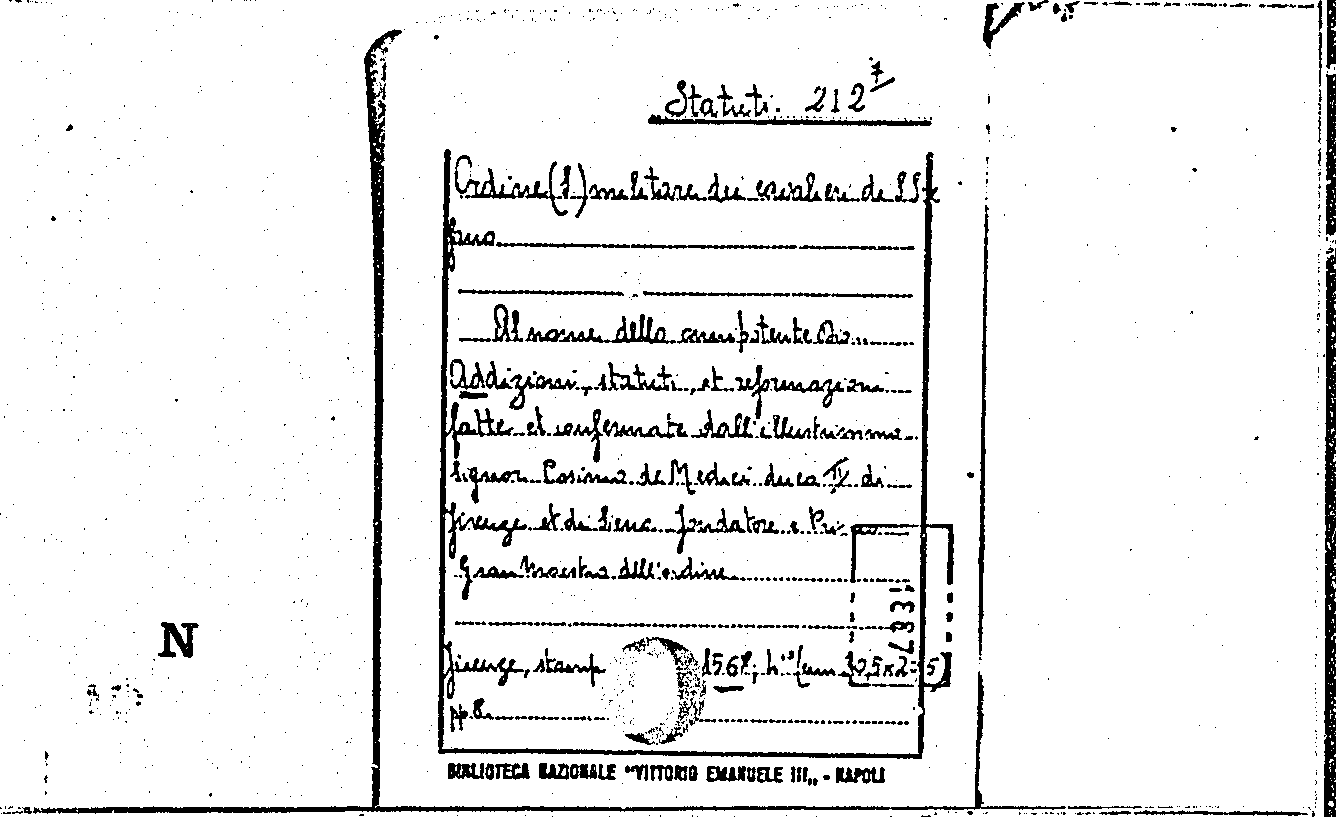 Statuti. 212 7
Ordine (L') militare dei cavalieri di S Ste
fano
Al nome della omnipotente Dio..
Addizioni, statuti, et reformazioni
fatte et confermate dall'illustrissimo
Signor Cosimo de Medici duca II di
firenze et di Siena fondatore e Pri
Gran Maestro dell'ordine
firenze, stamp 1568; (cm
pp. 8.
N
BIBLIOTECA NAZIONALE "VITTORIO EMANUELE III„ - NAPOLI